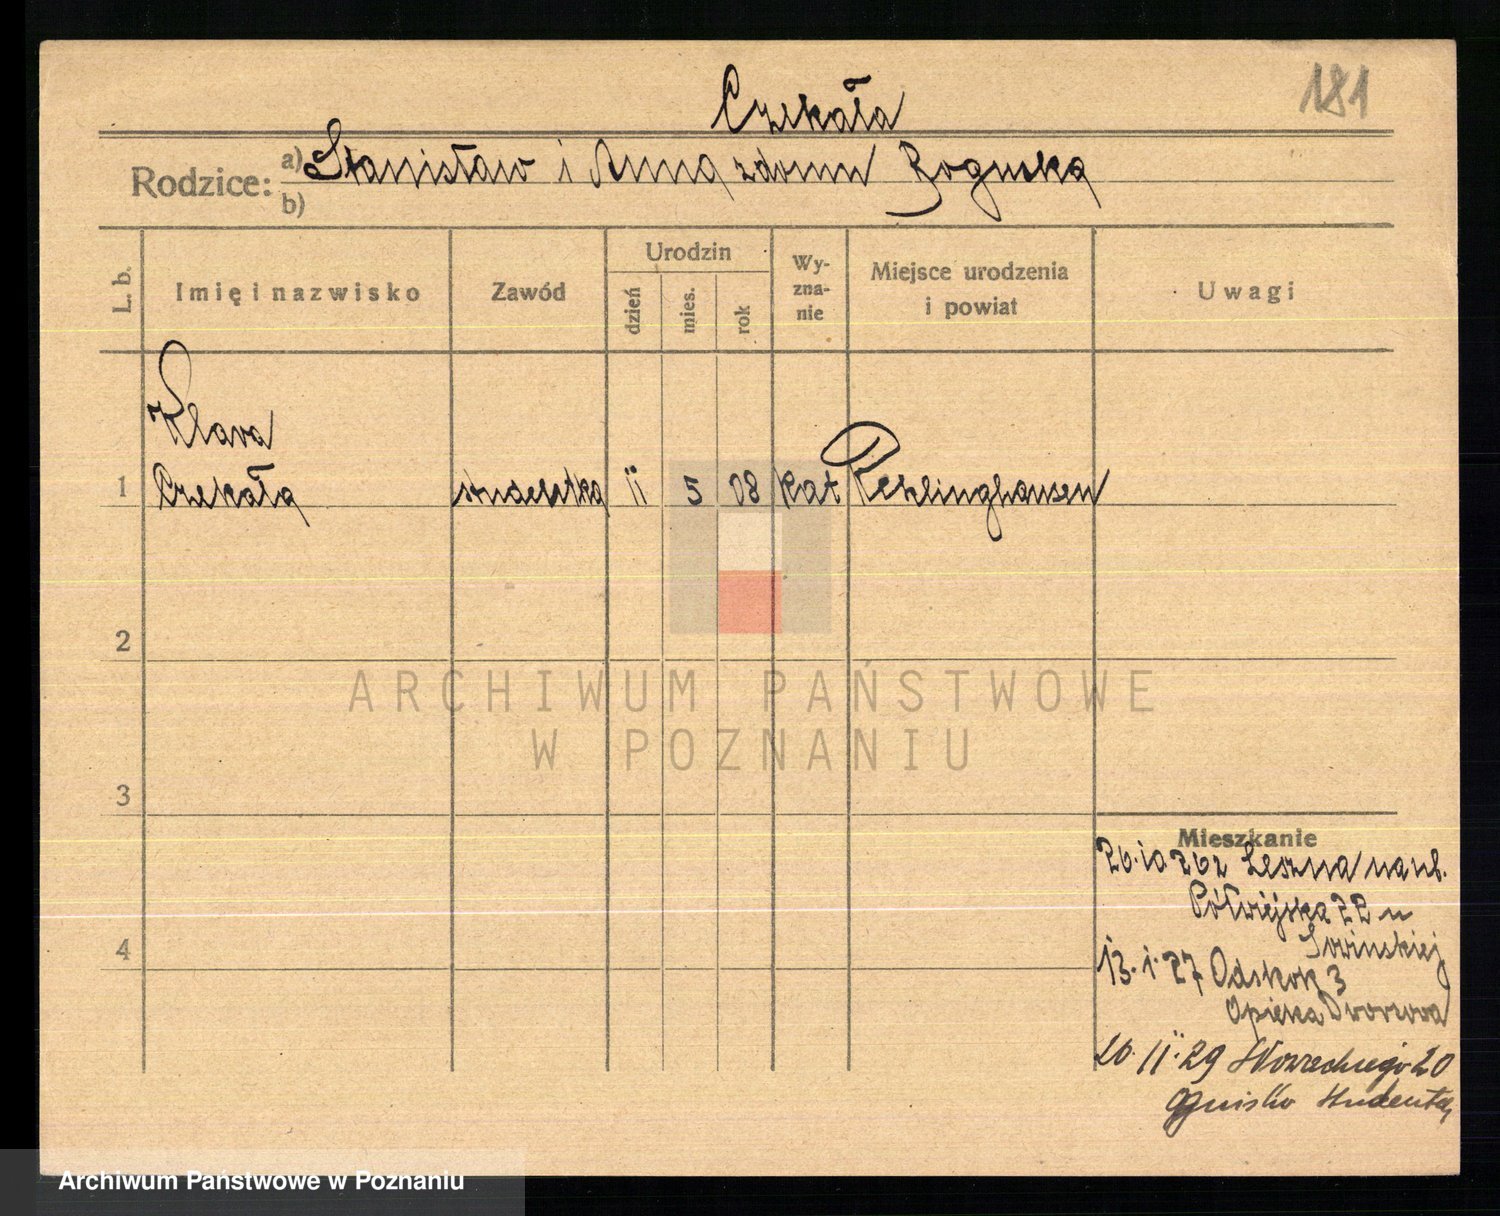 181
Czekała
Rodzice: a) Stanisław i Anna z domu Boguska
b)
L. b.
Imię i nazwisko
Zawód
Urodzin
dzień
mies.
rok
Wy-
zna-
nie
Miejsce urodzenia
i powiat
Uwagi
Klara
1 Czekała studentka 11 5 08 kat Recklinghausen
2
ARCHIWUM PAŃSTWOWE
W POZNANIU
3
Mieszkanie
26.10.26 z Leszna na ul.
Półwiejska 22 u
4
13.1.27 Odskok 3
Opieka Dworcowa
20.11.29 20
Ognisko Studentek
Archiwum Państwowe w Poznaniu